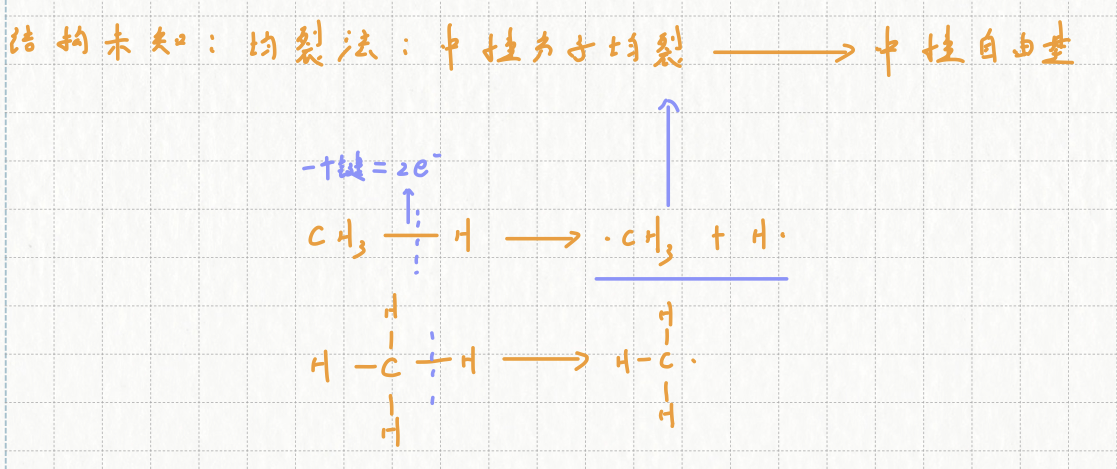 结构未知：均裂法：中性分子均裂 ⟶ 中性自由基
一个键 = 2e⁻
CH₃ — H ⟶ ·CH₃ + H·
H H
H — C — H ⟶ H — C ·
H H